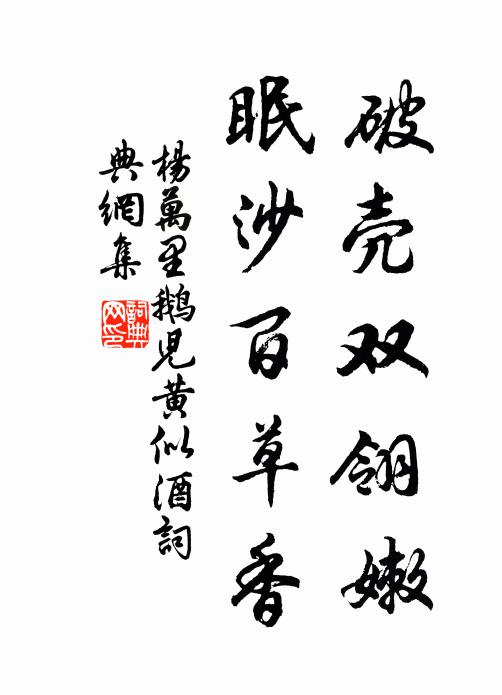 破壳双翎嫩
眠沙百草香
楊萬里鵝児黄似酒詞
典網集
詞典網印